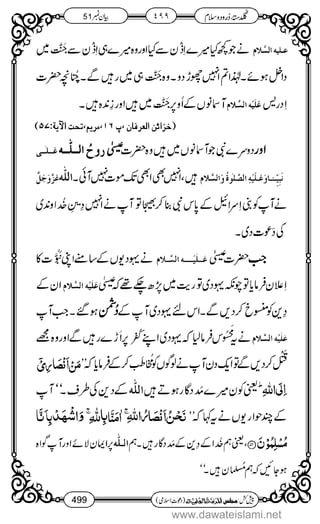 بیان نمبر 51
۴۹۹
گلدستۂ درود و سلام
علیہ السلام نے جو کچھ کہا میرے اِذن سے کہا اور ایک وہ ہی میرے اِذن سے جنّت میں
داخل ہوئے۔ لہٰذا تم انہیں چھوڑ دو۔ وہ جنّت ہی میں رہیں گے۔ چنانچہ حضرت
اِدریس عَلَیْہِ السَّلَام آسمانوں کے اُوپر جنّت میں ہیں اور زندہ ہیں۔
(خزائن العرفان، پ ۱۶، مریم، تحت الآیۃ: ۵۷)
اور دوسرے نبی جو آسمانوں میں ہیں وہ حضرت عیسیٰ روحُ اللہ عَلٰی
نَبِیِّنَا وَعَلَیْہِ الصَّلٰوۃُ وَالسَّلَام ہیں، انہیں بھی ابھی تک موت نہیں آئی۔ اللہ عَزَّوَجَلَّ
نے آپ کو بنی اسرائیل کے پاس نبی بنا کر بھیجا اور آپ نے انہیں دینِ خداوندی
کی دعوت دی۔
جب حضرت عیسیٰ عَلَیْہِ السَّلَام نے یہودیوں کے سامنے اپنی نُبُوَّت کا
اِعلان فرمایا تو چونکہ یہودی توریت میں پڑھ چکے تھے کہ عیسیٰ عَلَیْہِ السَّلَام ان کے
دین کو منسوخ کر دیں گے۔ اس لئے یہودی آپ کے دُشمن ہو گئے۔ جب آپ
عَلَیْہِ السَّلَام نے یہ محسوس فرما لیا کہ یہودی اپنے کفر پر اَڑے رہیں گے اور وہ مجھے
قتل کر دیں گے تو ایک دن آپ نے لوگوں کو مخاطب کر کے فرمایا کہ ”مَنْ اَنْصَارِیْۤ
اِلَى اللّٰهِ یعنی کون میرے مددگار ہوتے ہیں اللہ کے دین کی طرف۔“ آپ
کے چند حواریوں نے یہ کہا کہ ”نَحْنُ اَنْصَارُ اللّٰهِ ۚ اٰمَنَّا بِاللّٰهِ ۚ وَاشْهَدْ بِاَنَّا
مُسْلِمُوْنَ یعنی ہم خدا کے دین کے مددگار ہیں۔ ہم اللہ پر ایمان لائے اور آپ گواہ
ہو جائیں کہ ہم مسلمان ہیں۔“
499
پیش کش: مجلس المدینۃ العلمیۃ (دعوتِ اسلامی)
www.dawateislami.net